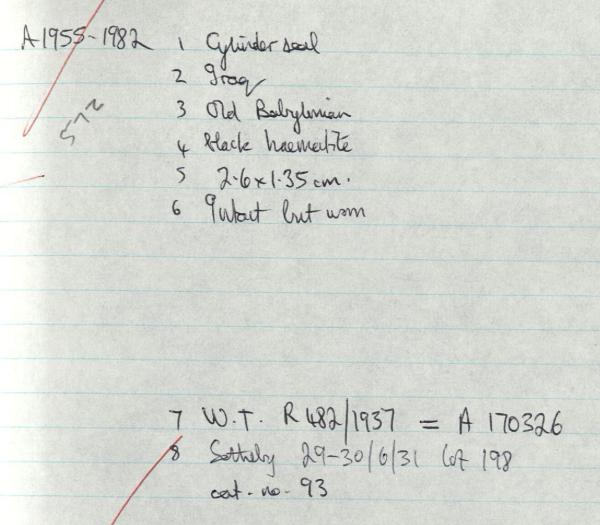 A1955-1982 1 Cylinder seal
2 Iraq
3 Old Babylonian
4 black haematite
5 2.6x1.35cm.
6 Intact but worn
572
7 W.T. R482/1937 = A 170326
8 Sotheby 29-30/6/31 lot 198
cat. no. 93